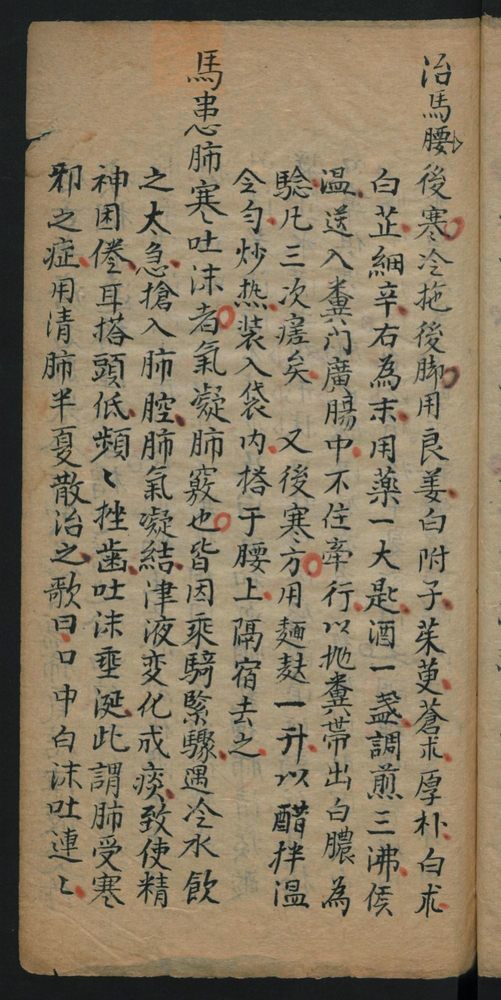 治馬腰後寒冷拖後脚用良姜白附子茱萸蒼朮厚朴白朮
白芷細辛右為末用藥一大匙酒一盞調煎三沸侯
溫送入糞門廣腸中不住牽行以拋糞帶出白膿為
騐凡三次瘥矣 又後寒方用麵麸一升以醋拌溫
令勻炒热裝入袋内搭于腰上隔宿去之
馬患肺寒吐沫者氣凝肺竅也皆因乘騎緊驟遇冷水飲
之太急搶入肺腔肺氣凝結津液変化成痰致使精
神困倦耳搭頭低頻〻挫齒吐沫垂涎此謂肺受寒
邪之症用清肺半夏散治之歌曰口中白沫吐連〻